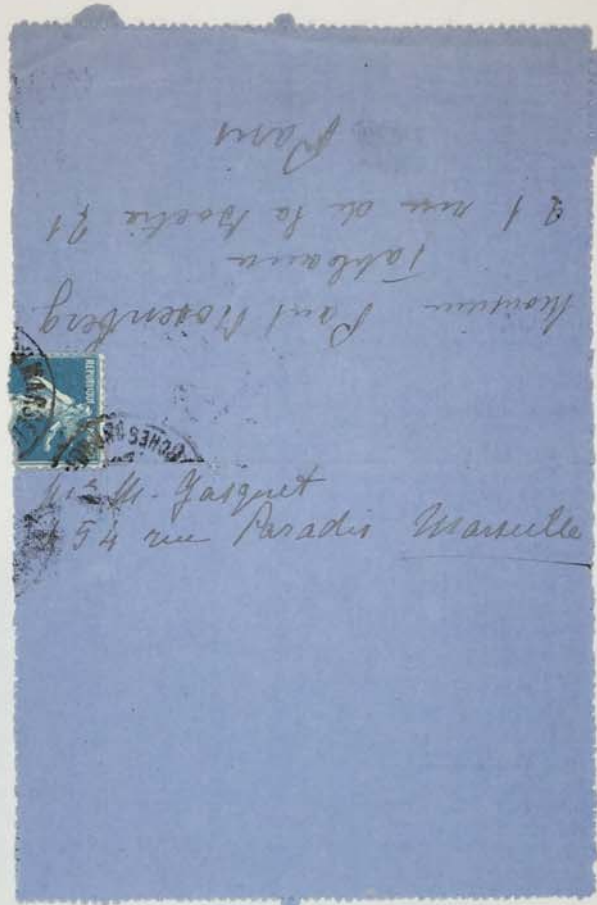 Monsieur Paul Rosenberg
Tableaux
21 rue de la Boetie 21
Paris
REPUBLIQUE
BOUCHES DU RHONE
M. Gasquet
54 rue Paradis Marseille